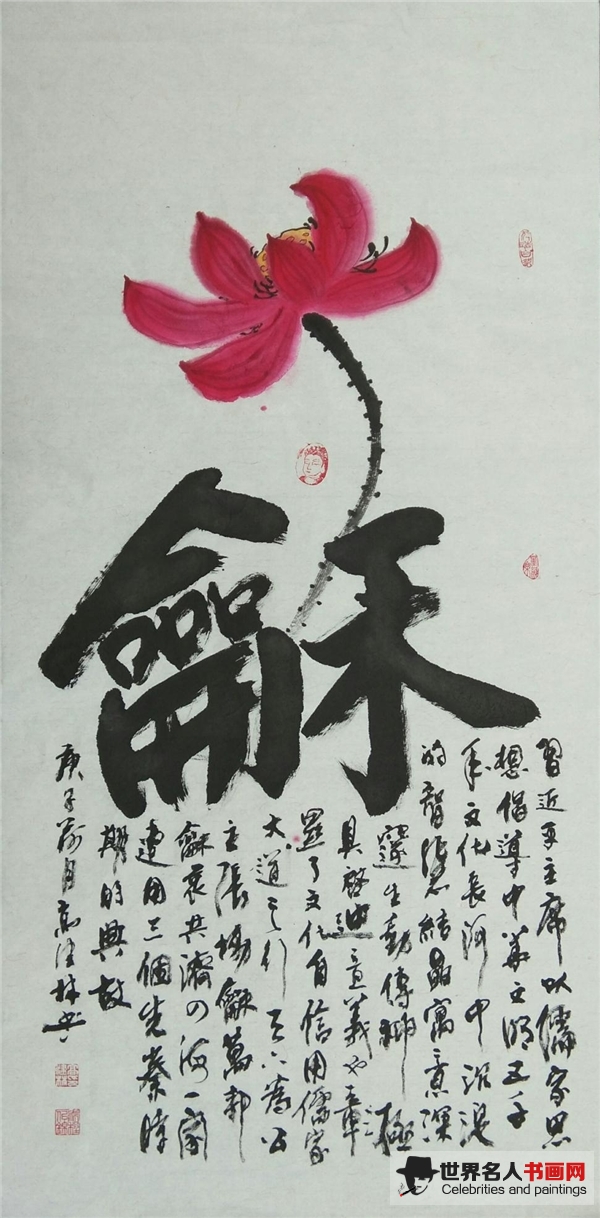 龢
習近平主席以儒家思
想倡導中华文明五千
年文化長河中沉淀
的智慧結晶寓意深
邃生動傳神極
具啟迪意義也彰
顯了文化自信用儒家
大道之行天下為公
主張協龢萬邦
龢衷共濟四海一家
連用三個先秦時
期的典故
庚子
月高
林书
世界名人书画网
Celebrities and paintings